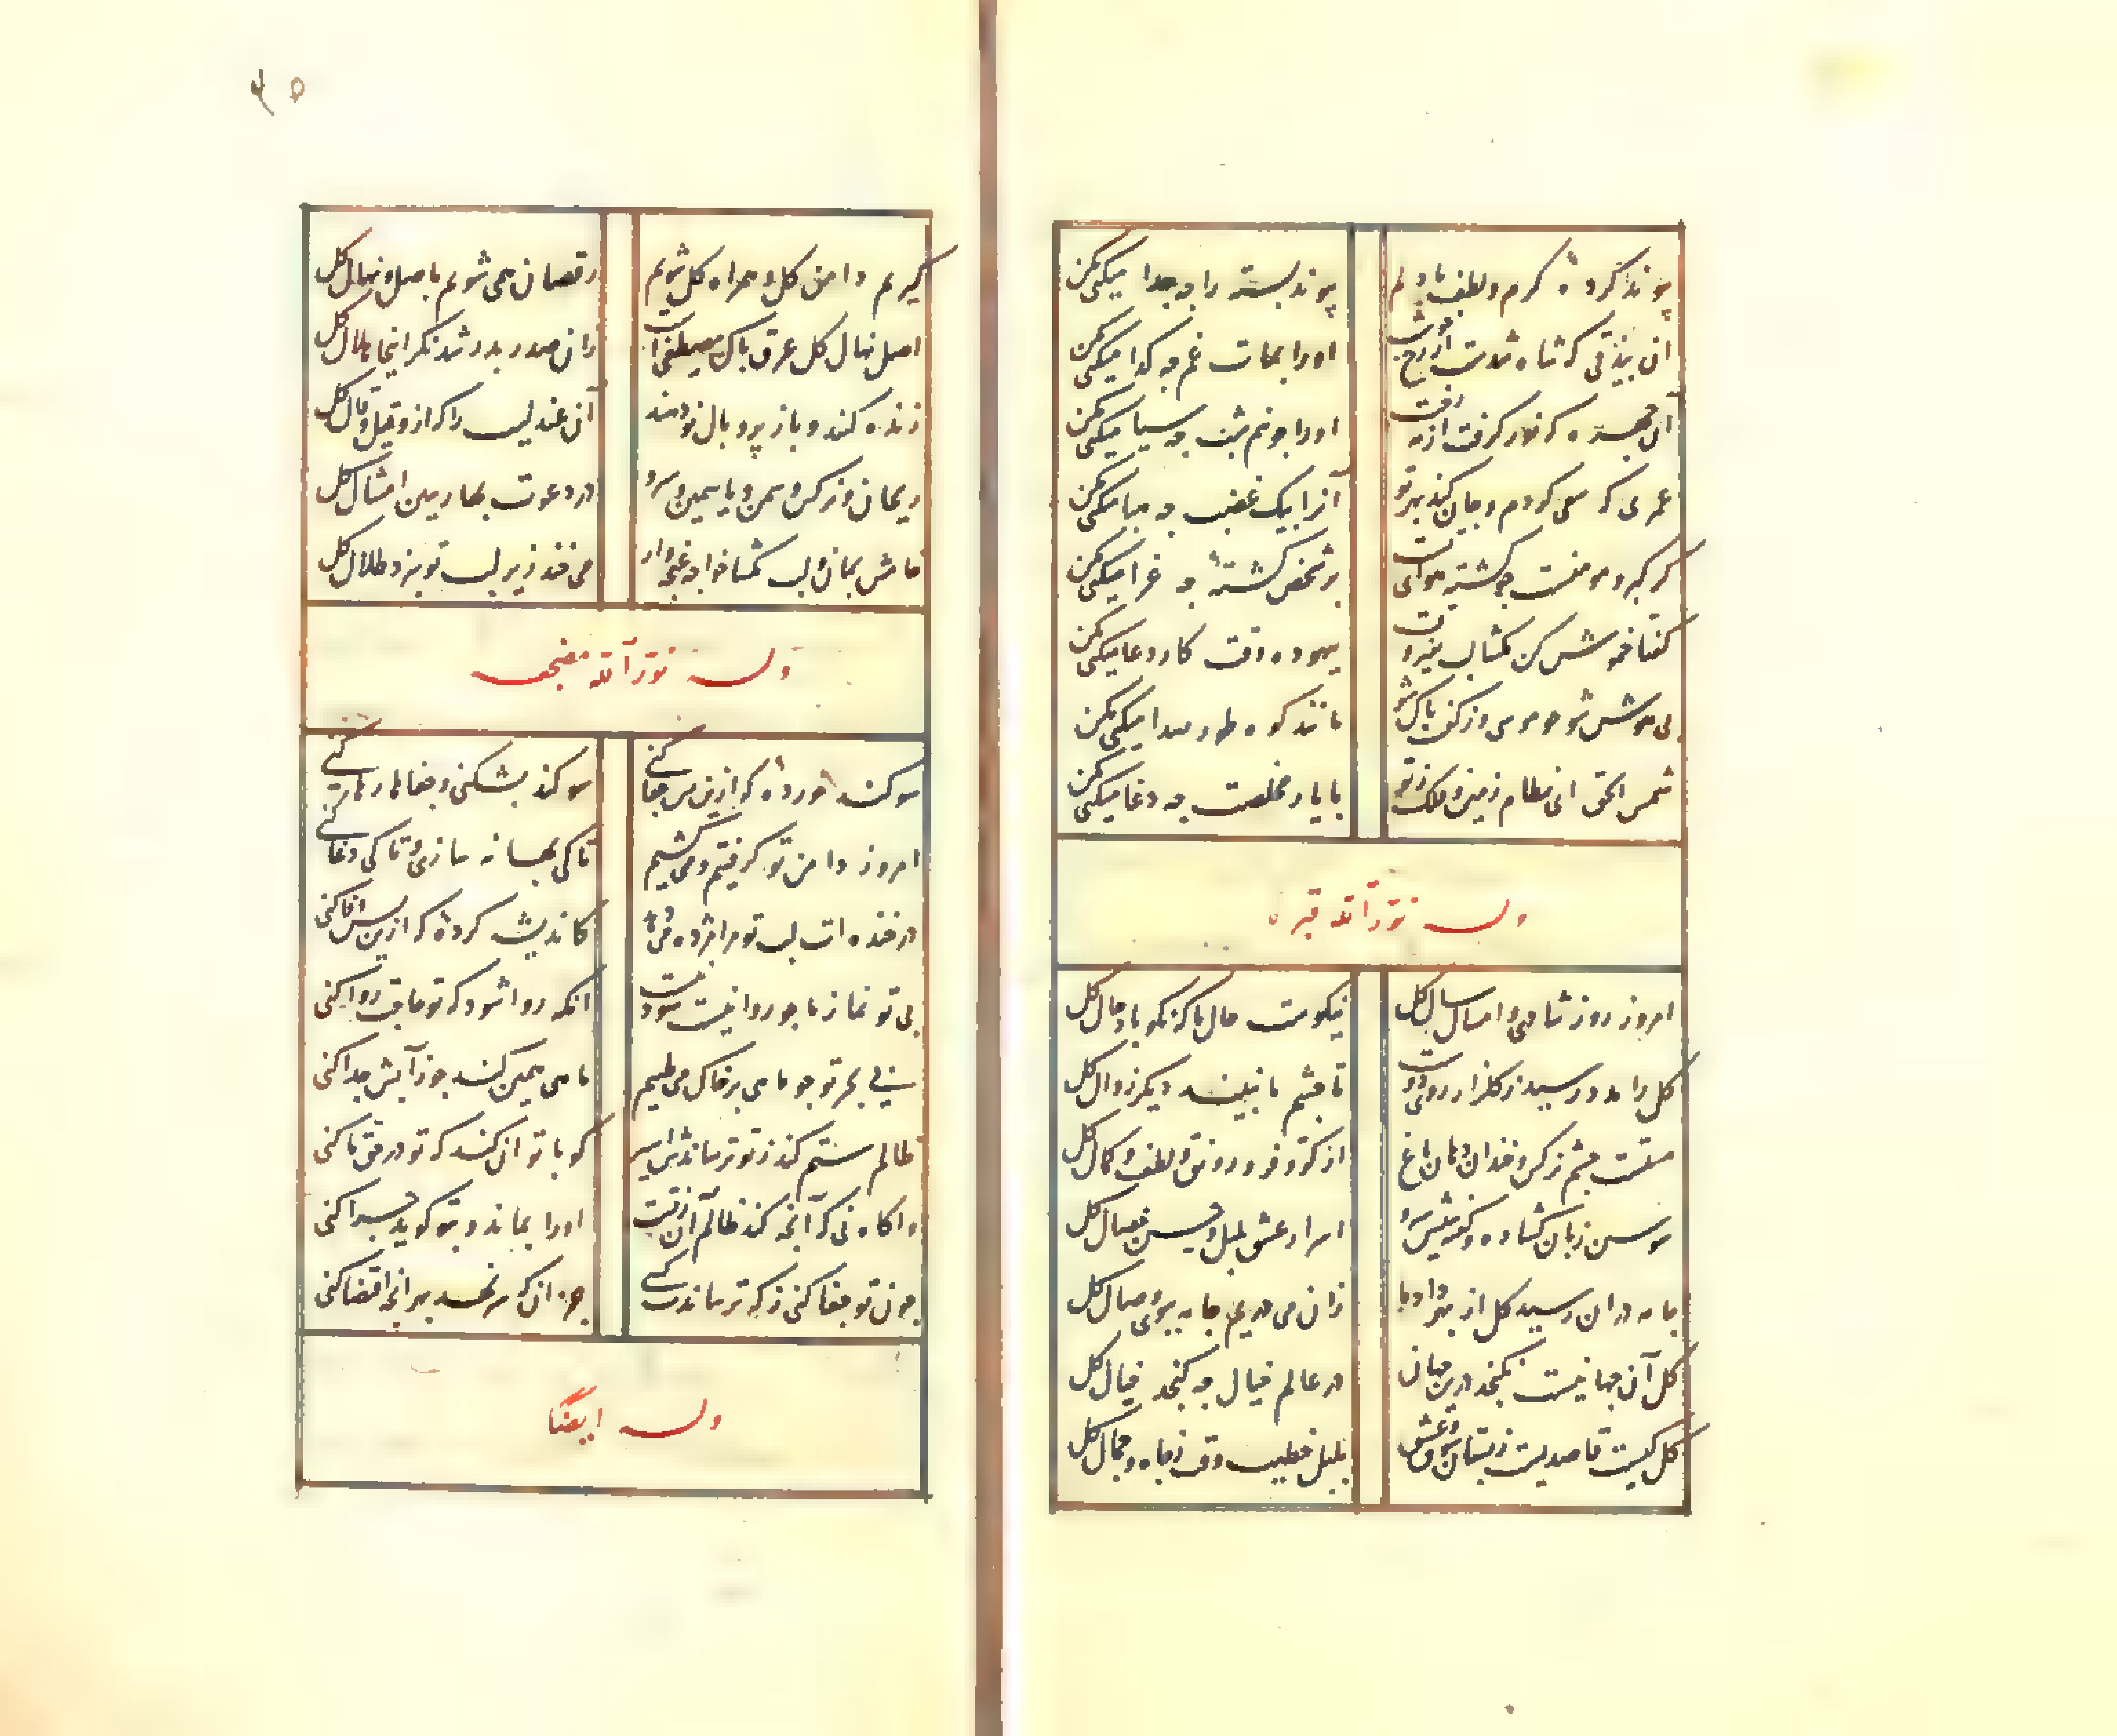 پیوند کرده کرم و لطف با دلم
پیوند بسته را چه جدا میکنی مکن
آن بیذقی که شاه شدست از رخ خوشت
اورا بمات غم چه گدا میکنی مکن
آن چهره که نور گرفت از رخت
اورا چو نیم شب چه سیا میکنی مکن
عمری که سی کردم و جان کند بهر تو
آنرا بیک غضب چه هبا میکنی مکن
گر گبر و مومنست چو کشته هوای تست
بر شخص کشته چه غزا میکنی مکن
گفتا خموش کن مگشا لب
بیهوده وقت کار دعا میکنی مکن
بی هوش شو چو موسی وز کف پاک شو
مانند کوه طور صدا میکنی مکن
شمس الحق ای نظام زمین و فلک ز تو
با یار مخلصت چه دغا میکنی مکن
وله نور الله قبره
امروز روز شادی و امسال سال گل
نیکوست حال ما که نکو باد حال گل
گل را مدد رسید ز گلزار روی دوست
تا چشم ما نبیند دیگر زوال گل
مستست چشم نرگس و خندان دهان باغ
از کرّ و فر و رونق و لطف و کمال گل
سوسن زبان گشاده و گفته بگوش سرو
اسرار عشق بلبل و حسن خصال گل
جامه دران رسید گل از بهر داد ما
زان می دریم جامه ببوی وصال گل
گل آن جهانیست نگنجد درین جهان
در عالم خیال چه گنجد خیال گل
گل کیست قاصدیست ز بستان عقل و عشق
بلبل خطیب وقت ز جاه و جمال گل
۴۵
گیریم دامن گل و همراه گل شویم
رقصان همی شویم باصل و نهال گل
اصل نهال گل عرق پاک مصطفی است
زان صدر بدر شد نگر انجا هلال گل
زنده کند و باز پر و بال نو دهند
آن عندلیب را که از و قیل و قال گل
ریحان و نرگس و سمن و یاسمین و سرو
در دعوت بهار ببین امتثال گل
خامش بمان لب مگشا خواجه غنچه وار
می خند زیر لب تو بزیر ظلال گل
وله نور الله مضجعه
سوگند خورده که ازین پس جفا کنی
سوگند بشکنی و جفاها رها کنی
امروز دامن تو گرفتیم و می کشیم
تا کی بهانه سازی و تا کی دغا کنی
در خنده است لب تو مرا مژده می دهد
کاندیشه کرده که ازین پس وفا کنی
بی تو نماز ما چو روا نیست سود چیست
انگه روا شود که تو حاجت روا کنی
بی بحر تو چو ماهی بر خاک می طپیم
ماهی همین کند چو ز آبش جدا کنی
ظالم ستم کند ز تو ترساندش اسیر
گو با تو ان کند که تو در حق ما کنی
واگاه نی که آنچه کند ظالم آن ز تست
اورا بماند و بتو گوید چرا کنی
چون تو جفا کنی ز که ترساندت کسی
جز ان که سر نهد بهر انچه اقتضا کنی
وله ایضًا